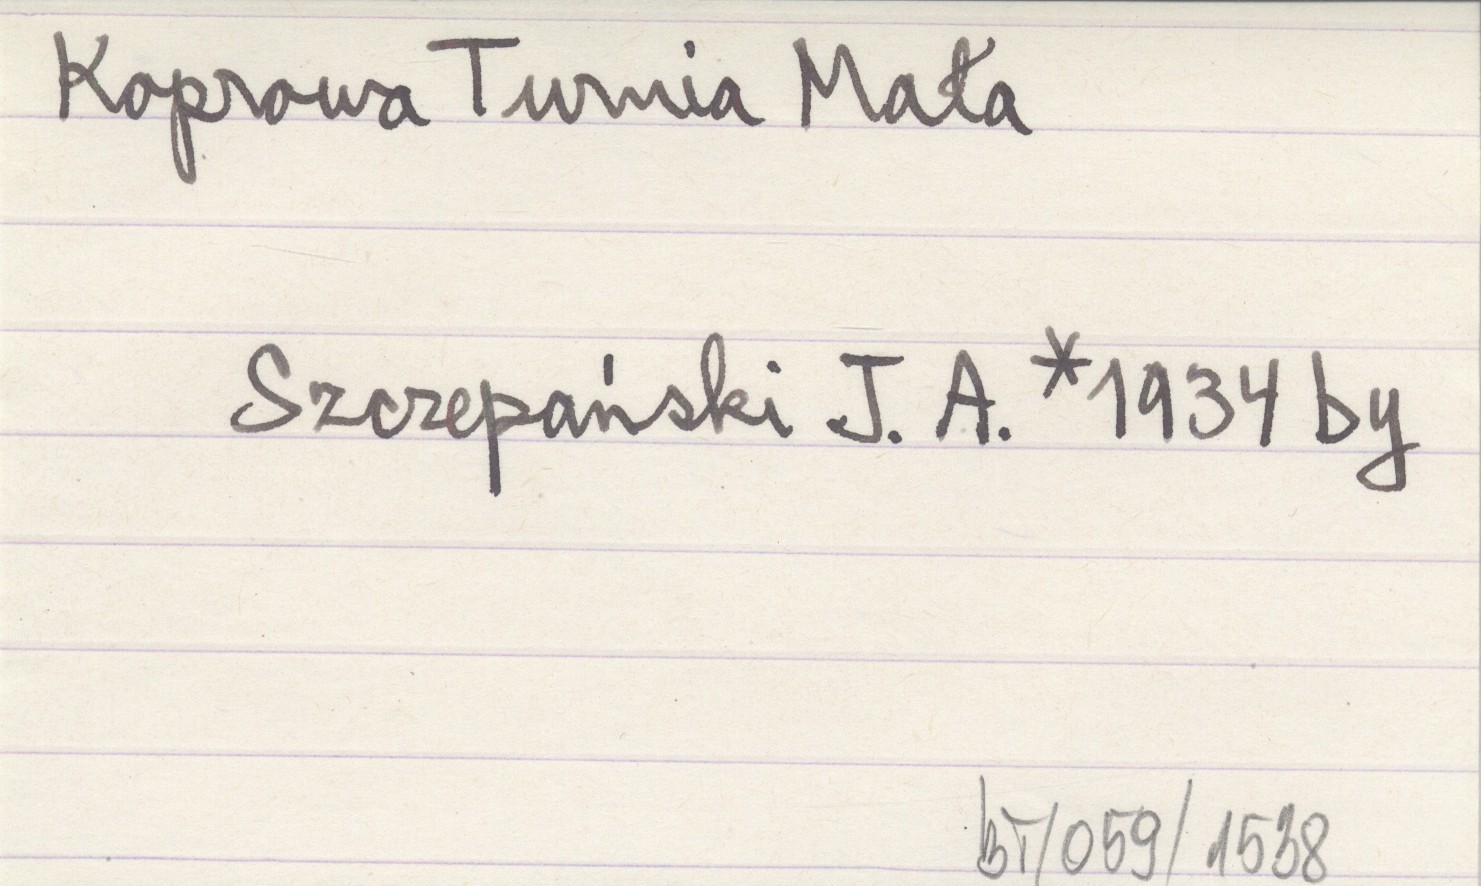 Koprowa Turnia Mała
Szczepański J. A. *1934 by
bT/059/1538